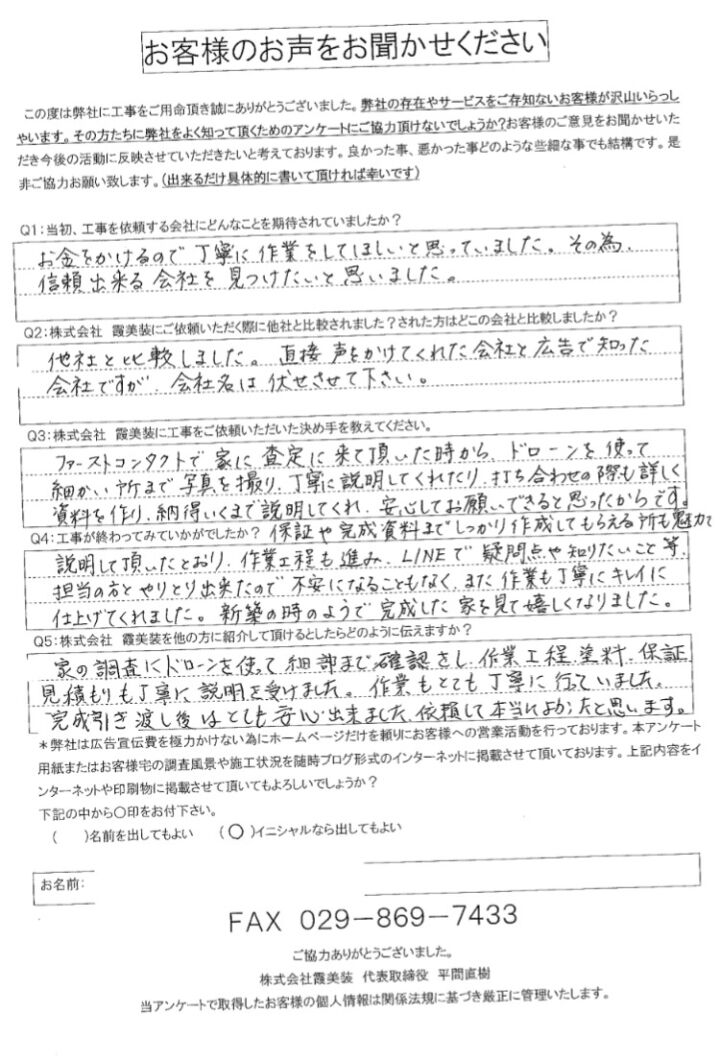 お客様のお声をお聞かせください
この度は弊社に工事をご用命頂き誠にありがとうございました。弊社の存在やサービスをご存知ないお客様が沢山いらっし
ゃいます。その方たちに弊社をよく知って頂くためのアンケートにご協力頂けないでしょうか?お客様のご意見をお聞かせいた
だき今後の活動に反映させていただきたいと考えております。良かった事、悪かった事どのような些細な事でも結構です。是
非ご協力お願い致します。(出来るだけ具体的に書いて頂ければ幸いです)
Q1:当初、工事を依頼する会社にどんなことを期待されていましたか?
お金をかけるので丁寧に作業をしてほしいと思っていました。その為、
信頼出来る会社を見つけたいと思いました。
Q2:株式会社 霞美装にご依頼いただく際に他社と比較されました?された方はどこの会社と比較しましたか?
他社と比較しました。直接声をかけてくれた会社と広告で知った
会社ですが、会社名は伏せさせて下さい。
Q3:株式会社 霞美装に工事をご依頼いただいた決め手を教えてください。
ファーストコンタクトで家に査定に来て頂いた時から、ドローンを使って
細かい所まで写真を撮り、丁寧に説明してくれたり、打ち合わせの際も詳しく
資料を作り、納得いくまで説明してくれ、安心してお願いできると思ったからです。
保証や完成資料までしっかり作成してもらえる所も魅力で
Q4:工事が終わってみていかがでしたか?
説明して頂いたとおり、作業工程も進み、LINEで疑問点や知りたいこと等、
担当の方とやりとり出来たので不安になることもなく、また作業も丁寧にキレイに
仕上げてくれました。新築の時のようで完成した家を見て嬉しくなりました。
Q5:株式会社 霞美装を他の方に紹介して頂けるとしたらどのように伝えますか?
家の調査にドローンを使って細部まで確認をし、作業工程、塗料、保証、
見積もりも丁寧に説明を受けました。作業もとても丁寧に行っていました。
完成引き渡し後はとても安心出来ました。依頼して本当によかったと思います。
*弊社は広告宣伝費を極力かけない為にホームページだけを頼りにお客様への営業活動を行っております。本アンケート
用紙またはお客様宅の調査風景や施工状況を随時ブログ形式のインターネットに掲載させて頂いております。上記内容をイ
ンターネットや印刷物に掲載させて頂いてもよろしいでしょうか?
下記の中から○印をお付下さい。
( )名前を出してもよい (○)イニシャルなら出してもよい
お名前:
FAX 029-869-7433
ご協力ありがとうございました。
株式会社霞美装 代表取締役 平間直樹
当アンケートで取得したお客様の個人情報は関係法規に基づき厳正に管理いたします。